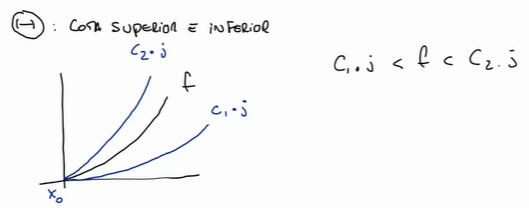 Θ: COTA SUPERIOR E INFERIOR
C₂.j
f
C₁.j
x₀
C₁.j < f < C₂.j